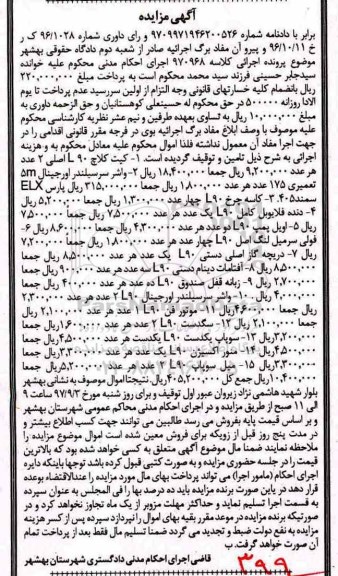 آگهی مزایده
برابر با دادنامه شماره ۹۷۰۹۹۷۱۹۴۶۲۰۰۵۲۶ و رای داوری شماره ۹۶/۱۰۲۸ ک ر
خ ۹۶/۱۰/۱۱ و پیرو آن مفاد برگ اجرائیه صادر از شعبه دوم دادگاه حقوقی بهشهر
موضوع پرونده اجرائی کلاسه ۹۷۰۹۶۸ اجرای احکام مدنی محکوم علیه خوانده
سیدجابر حسینی فرزند سید محمد محکوم است به پرداخت مبلغ ۲۲۰,۰۰۰,۰۰۰
ریال بانضمام کلیه خسارتهای قانونی وجه التزام از اولین سررسید عدم پرداخت تا یوم
الادا روزانه ۵۰۰۰۰۰ در حق محکوم له حسینعلی کوهستانیان و حق الزحمه داوری به
مبلغ ۱۰,۰۰۰,۰۰۰ ریال به تساوی بعهده طرفین و نیم عشر نظریه کارشناسی محکوم
علیه موصوف با وصف ابلاغ مفاد برگ اجرائیه بوی در فرجه مقرر قانونی اقدامی را در
جهت اجرا مفاد آن معمول نداشته فلذا اموال محکوم علیه معادل محکوم به و هزینه
اجرائی به شرح ذیل تامین و توقیف گردیده است. ۱- کیت کلاچ L۹۰ اصلی ۲ عدد
هر عدد ۹,۲۰۰,۰۰۰ ریال جمعا ۱۸,۴۰۰,۰۰۰ ریال ۲-واشر سرسیلندر اورجینال ۵m
تعمیری ۱۷۵ عدد هر عدد ۱,۸۰۰,۰۰۰ ریال جمعا ۳۱۵,۰۰۰,۰۰۰ ریال پارس ELX
سمند۴۰۵ ۳- کاسه چرخ L۹۰ چهار عدد ۱,۳۰۰,۰۰۰ ریال جمعا ۵,۲۰۰,۰۰۰ ریال
۴- دنده فلایویل کامل L۹۰ یک عدد هر عدد ۷,۵۰۰,۰۰۰ ریال جمعا ۷,۵۰۰,۰۰۰
ریال ۵- اویل پمپ L۹۰ دو عدد هر عدد ۴,۳۰۰,۰۰۰ ریال جمعا ۸,۶۰۰,۰۰۰ ریال ۶-
فولی سرمیل لنگ اصل L۹۰ چهار عدد هر عدد ۱,۸۰۰,۰۰۰ ریال جمعا ۷,۲۰۰,۰۰۰
ریال ۷- دریچه گاز اصلی دستی L۹۰ یک عدد هر عدد ۸,۵۰۰,۰۰۰ ریال جمعا
۸,۵۰۰,۰۰۰ ریال ۸- آفتامات دینام دستی L۹۰ سه عدد هر عدد ۹۰۰,۰۰۰ ریال جمعا
۲,۷۰۰,۰۰۰ ریال ۹- زبانه قفل صندوق L۹۰ ده عدد هر عدد ۴۰۰,۰۰۰ ریال جمعا
۴,۰۰۰,۰۰۰ ریال ۱۰- واشر سرسیلندر اورجینال L۹۰ ۲ عدد هر عدد ۲,۳۰۰,۰۰۰
ریال جمعا ۴,۶۰۰,۰۰۰ ریال ۱۱- موتور فن L۹۰ ۱ عدد هر عدد ۲,۱۰۰,۰۰۰ ریال
جمعا ۲,۱۰۰,۰۰۰ ریال ۱۲- سگدست L۹۰ ۲ عدد هر عدد ۱,۶۰۰,۰۰۰ ریال جمعا
۳,۲۰۰,۰۰۰ ریال ۱۳- سوپاپ یکدست L۹۰ یکدست هر عدد ۴,۵۰۰,۰۰۰ ریال جمعا
۴,۵۰۰,۰۰۰ ریال ۱۴- سنور اکسیژن L۹۰ یک عدد هر عدد ۳,۳۰۰,۰۰۰ ریال جمعا
۳,۳۰۰,۰۰۰ ریال ۱۵- میل سوپاپ L۹۰ ۲ عدد هر عدد ۵,۲۰۰,۰۰۰ ریال جمعا
۱۰,۴۰۰,۰۰۰ ریال جمع کل ۴۰۵,۲۰۰,۰۰۰ ریال. نتیجتا اموال موصوف به نشانی بهشهر
بلوار شهید هاشمی نژاد زیروان عبور اول توقیف و برای روز شنبه مورخ ۹۷/۹/۳ ساعت ۹
الی ۱۱ صبح از طریق مزایده و در اجرای احکام مدنی محاکم عمومی شهرستان بهشهر
و بر اساس قیمت پایه بفروش می رسد طالبین می توانند جهت کسب اطلاع بیشتر و
در مدت پنج روز قبل از زویکه برای فروش معین شده است اموال موضوع مزایده را
ملاحظه نمایند ضمنا مال موضوع آگهی متعلق به کسی خواهد شده بود که بالاترین
قیمت را در جلسه حضوری مزایده و به صورت کتبی قبول کرده باشد توجها باینکه دایره
اجرای احکام (مامور اجرا) می تواند پرداخت بهای مال مورد مزایده را عندالاقتضا بوعده
قرار دهد در پاین صورت برنده مزایده باید ده درصد بها را فی المجلس به عنوان سپرده
به قسمت اجرا تسلیم نماید و حداکثر مهلت مزبور از یک ماه تجاوز نخواهد کرد و در
صورتیکه برنده مزایده در موعد مقرر بقیه بهای اموال را نپردازد سپرده پس از کسر هزینه
مزایده به نفع دولت ضبط و تجدید می گردد ضمنا تسلیم مال فقط بعد از پرداخت تمام
آن صورت خواهد گرفت.ب
قاضی اجرای احکام مدنی دادگستری شهرستان بهشهر
۳۹۹